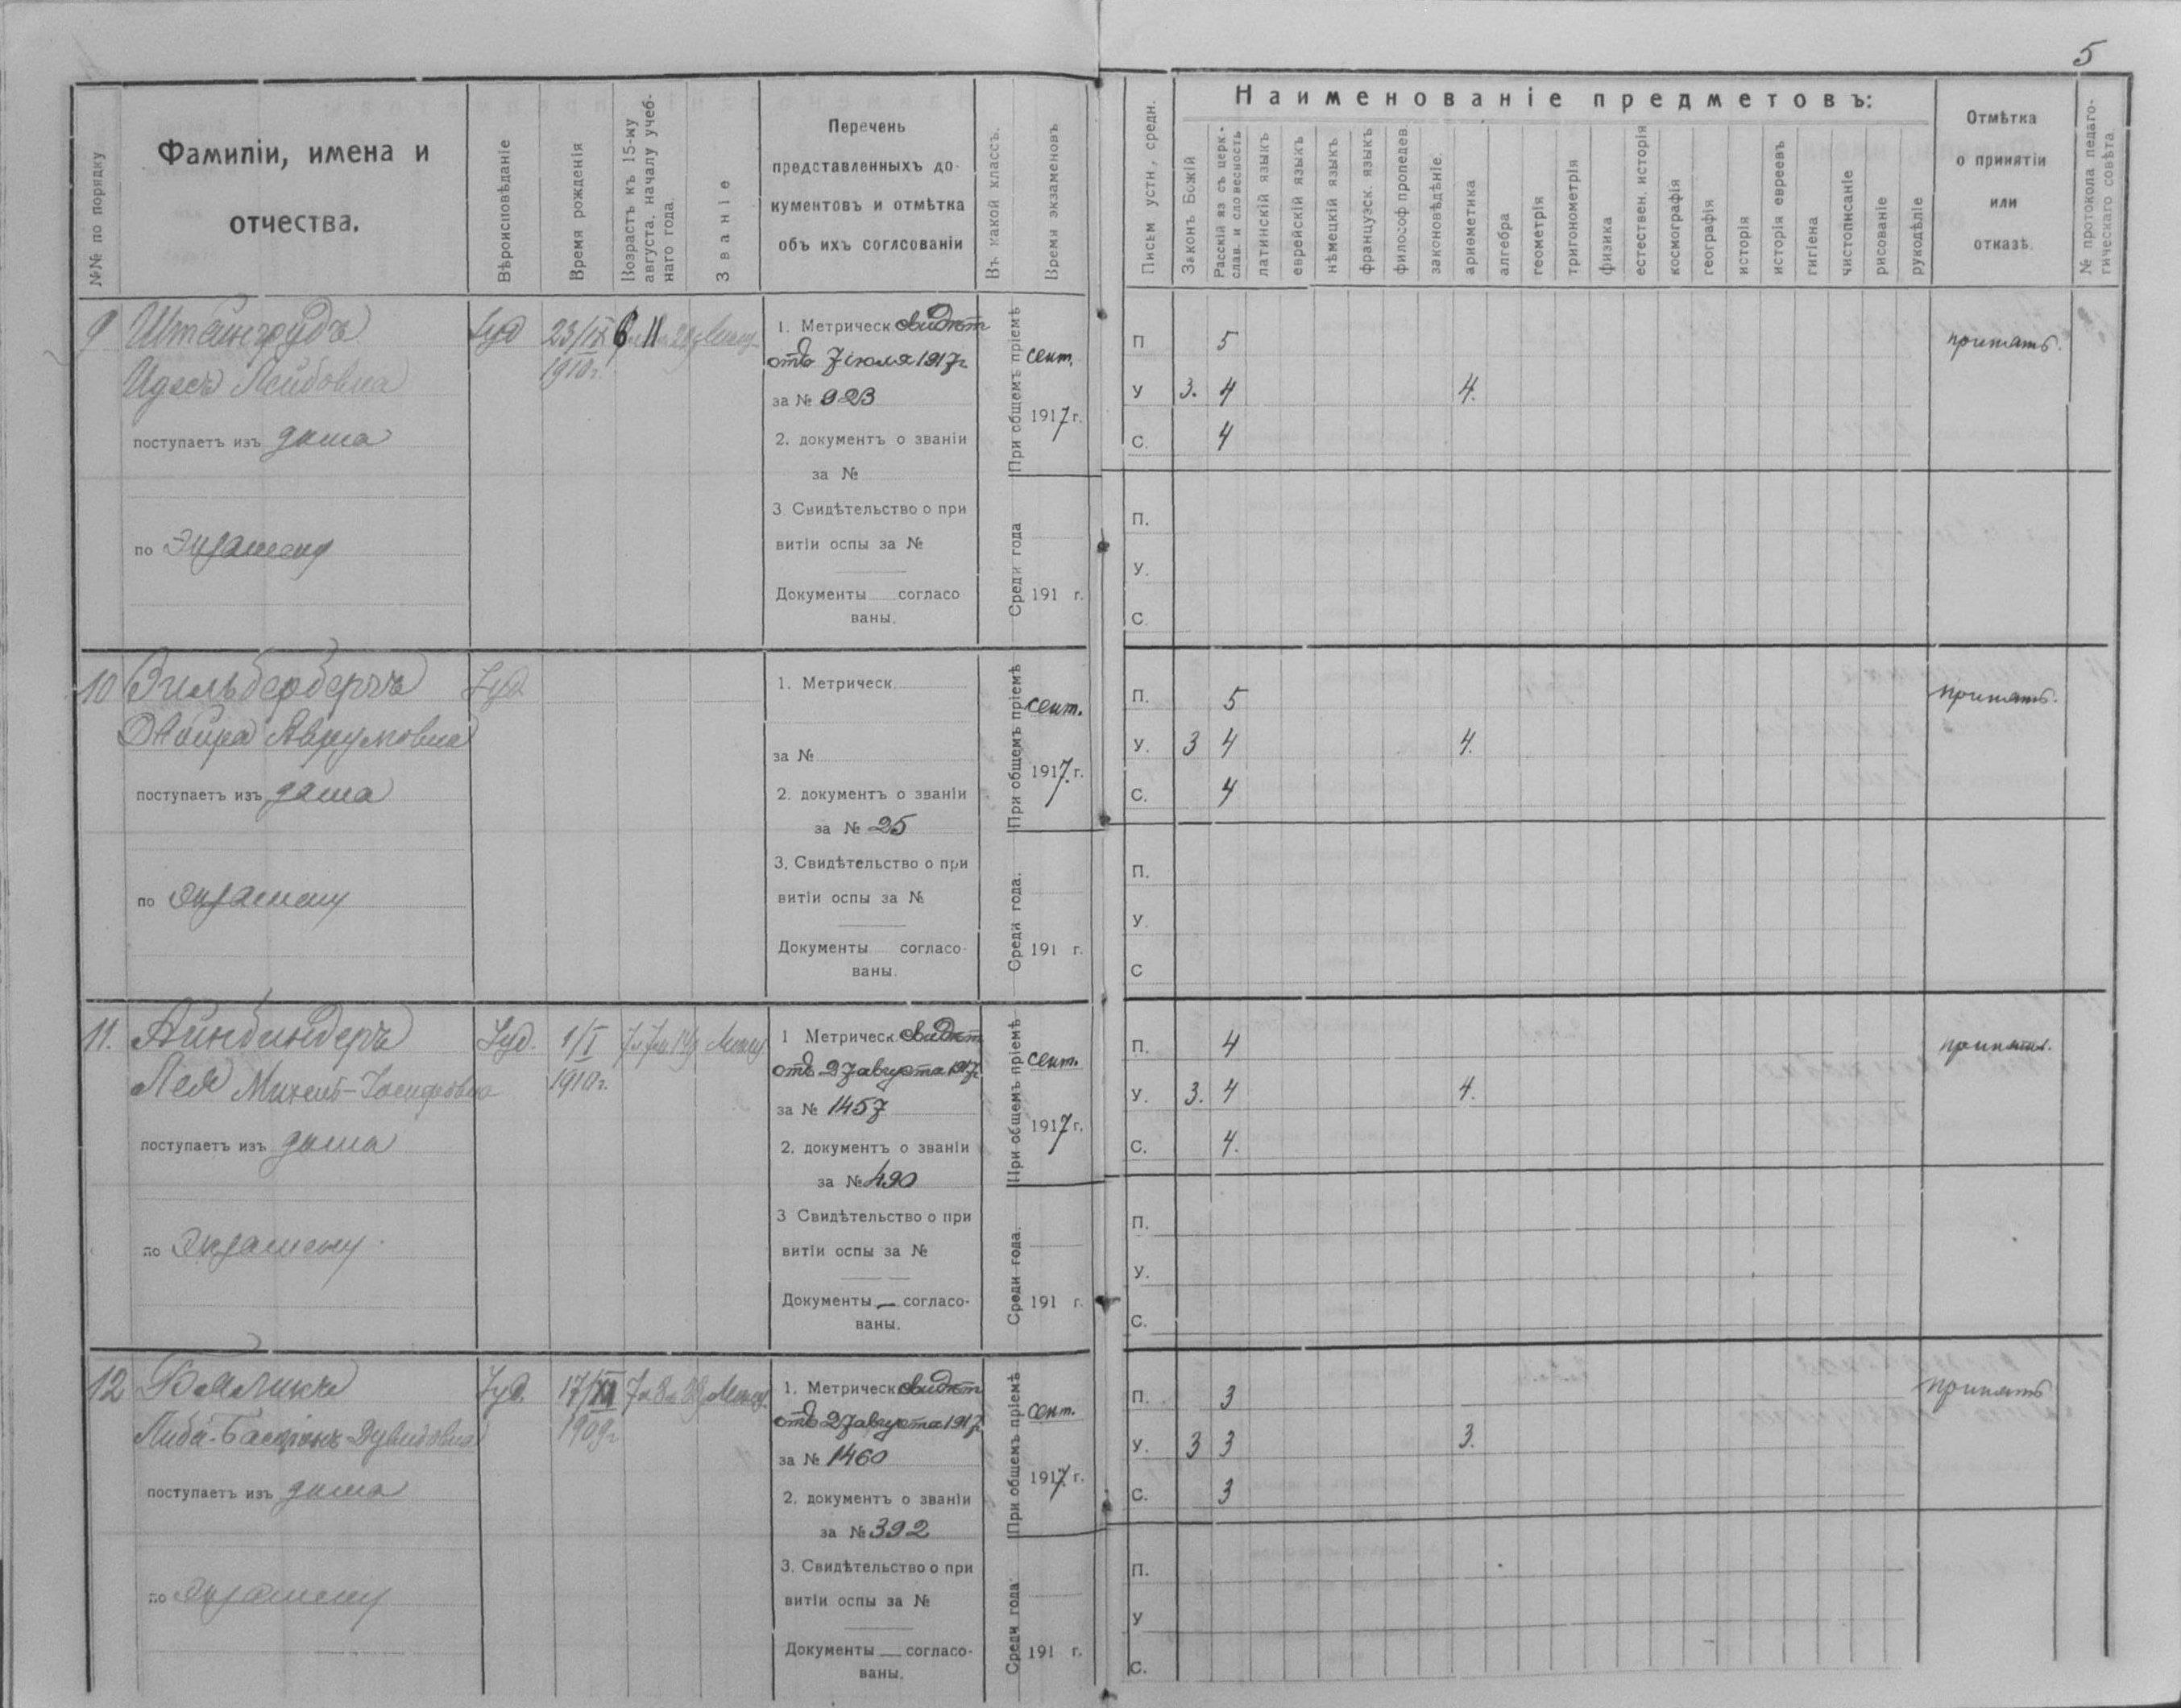 5
№№ по порядку
Фамиліи, имена и
отчества.
Вѣроисповѣданіе
Время рожденія
Возрастъ къ 15-му
августа. началу учеб-
наго года.
Званіе
Перечень
представленныхъ до-
кументовъ и отмѣтка
объ ихъ соглсованіи
Въ какой классъ.
Время экзаменовъ
Письм устн., средн.
Наименованіе предметовъ:
Законъ Божій
Расскій яз съ церк.-
слав. и словесность
латинскій языкъ
еврейскій языкъ
нѣмецкій языкъ
французск. языкъ
философ пропедев.
законовѣдѣніе.
ариѳметика
алгебра
геометрія
тригонометрія
физика
естествен. исторія
космографія
географія
исторія
исторія евреевъ
гигіена
чистописаніе
рисованіе
рукодѣліе
Отмѣтка
о принятіи
или
отказѣ.
№ протокола педаго-
гическаго совѣта
9 Штейнгрудъ
Идесъ Лейбовна
поступаетъ изъ дома
по экзамену
Іуд
23/IX
1910 г.
1. Метрическ свидѣт
отъ 7 іюля 1917 г
за № 923
2. документъ о званіи
за №
3. Свидѣтельство о при
витіи оспы за №
Документы согласо
ваны.
При общемъ пріемѣ
сент.
1917 г.
Среди года
191 г.
П 5
У 3. 4 4.
С. 4
принять.
П.
У.
С
10 Зильбербергъ
Двойра Аврумовна
поступаетъ изъ дома
по экзамену
Іуд
1. Метрическ
за №
2. документъ о званіи
за № 25
3. Свидѣтельство о при
витіи оспы за №
Документы согласо-
ваны.
При общемъ пріемѣ
сент.
1917. г.
Среди года.
191 г.
П. 5
У. 3 4 4.
С. 4
принять.
П.
У.
С
11. Айнбиндеръ
Лея Михель-Іосифовна
поступаетъ изъ дома
по экзамену.
Іуд.
1/I
1910 г.
1 Метрическ свидѣт
отъ 27 августа 1917 г
за № 1457
2. документъ о званіи
за № 490
3 Свидѣтельство о при
витіи оспы за №
Документы — согласо-
ваны.
При общемъ пріемѣ
сент.
1917 г.
Среди года.
191 г.
П. 4
У. 3. 4 4.
С. 4.
принять.
П.
У.
С.
12 Бяликъ
поступаетъ изъ дома
по экзамену
Іуд.
17/XI
1909 г
1. Метрическ свидѣт
отъ 27 августа 1917 г
за № 1460
2. документъ о званіи
за № 392
3. Свидѣтельство о при
витіи оспы за №
Документы — согласо-
ваны.
При общемъ пріемѣ
сент.
1917. г.
Среди года
191 г.
П. 3
У. 3 3 3.
С. 3
принять
П.
У
С.